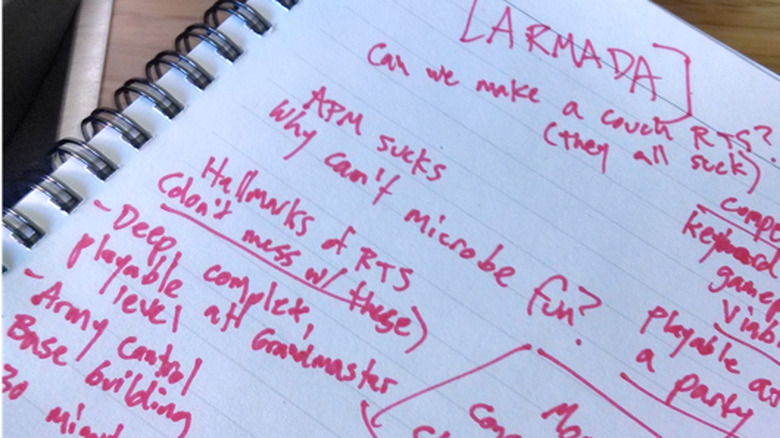 [ARMADA]
Can we make a couch RTS?
(they all suck)
APM sucks
Why can't microbe fun?
Hallmarks of RTS
(don't mess w/ these)
- Deep, complex,
playable at
level Grandmaster
- Army control
Base building
30
keyboard
playable as
a party